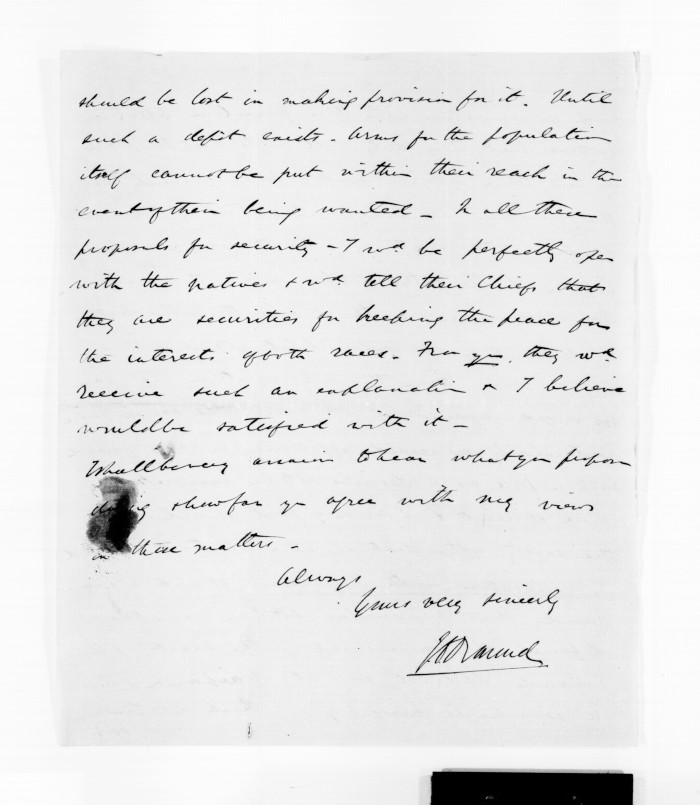 should be lost in making provision for it. Until
such a depôt exists - Arms for the population
itself cannot be put within their reach in the
event of their being wanted - In all these
proposals for security - I wd. be perfectly open
with the natives & wd. tell their Chiefs that
they are securities for keeping the peace for
the interests of both races. From you, they wd.
receive such an explanation & I believe
would be satisfied with it -
I shall be very anxious to hear what you propose
doing & how far you agree with my views
in these matters -
Always
Yours very sincerely